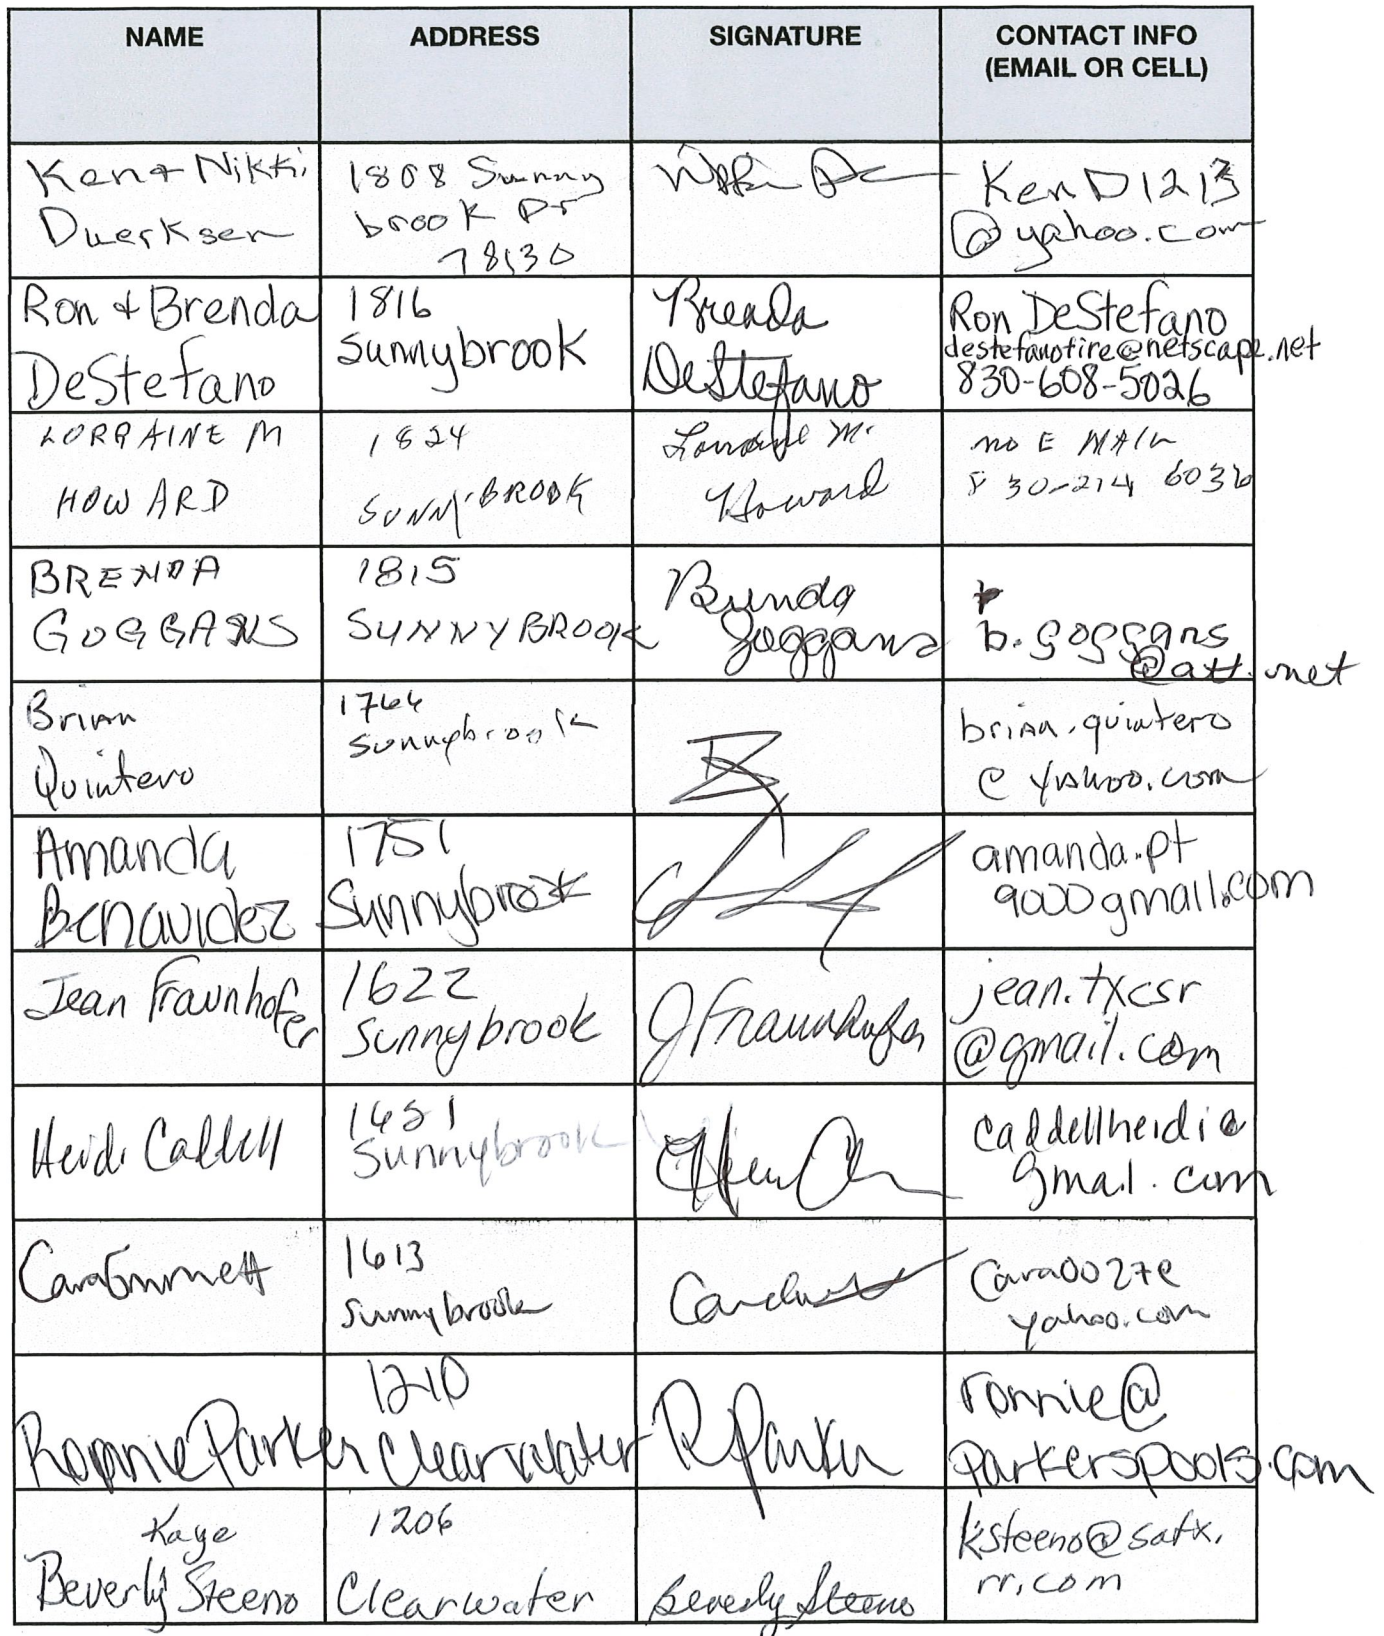 NAME
ADDRESS
SIGNATURE
CONTACT INFO
(EMAIL OR CELL)
Ken + Nikki
Duerksen
1808 Sunny
brook Dr
78130
KenD1213
@yahoo.com
Ron & Brenda
DeStefano
1816
Sunnybrook
Brenda
DeStefano
Ron DeStefano
destefanofire@netscape.net
830-608-5026
LORRAINE M
HOWARD
1824
SUNNYBROOK
Lorraine M.
Howard
NO E MAIL
830-214 6036
BRENDA
GOGGANS
1815
SUNNYBROOK
Brenda
Goggans
b.goggans
@att.net
Brian
Quintero
1764
Sunnybrook
brian.quintero
@yahoo.com
Amanda
Benavidez
1751
Sunnybrook
amanda.pt
900@gmail.com
Jean Fraunhofer
1622
Sunnybrook
J Fraunhofer
jean.txcsr
@gmail.com
Heidi Caddell
1651
Sunnybrook
caddellheidi@
gmail.com
Cara Emmett
1613
Sunnybrook
Cara0027@
yahoo.com
Ronnie Parker
1210
Clearwater
R Parker
ronnie@
parkerspools.com
Kaye
Beverly Steeno
1206
Clearwater
Beverly Steeno
ksteeno@satx.
rr.com